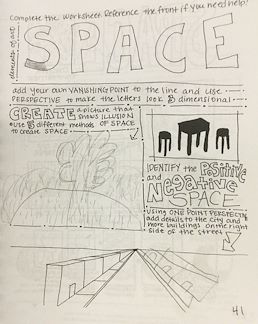 Complete the Worksheet. Reference the front if you need help!
elements of art
SPACE
add your own VANISHING POINT to the line and use
PERSPECTIVE to make the letters look 3 dimensional
CREATE a picture that
shows ILLUSION
use 3 different methods of SPACE
to create SPACE
IDENTIFY the Positive
and Negative
SPACE
Using ONE POINT PERSPECTIVE
add details to the city and
more buildings on the right
side of the street
41